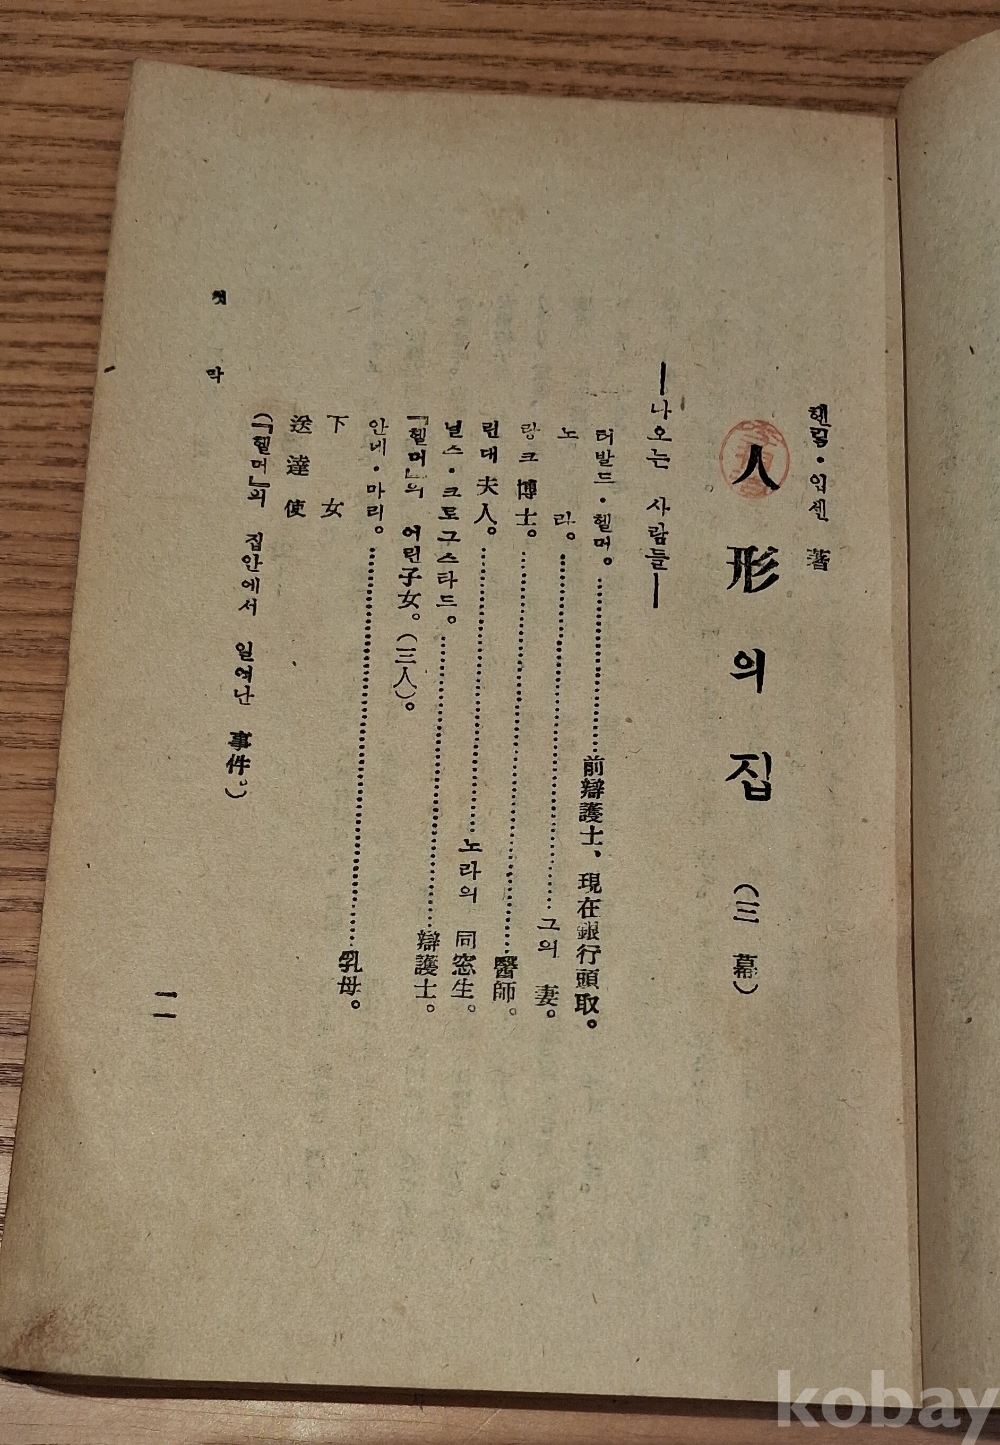 헨릭·입센 著
人形의 집 (三幕)
—나오는 사람들—
터발드·헬머。……前辯護士、現在銀行頭取。
노라。……그의 妻。
랑크 博士。……醫師。
린대 夫人。……노라의 同窓生。
닐스·크로구스타드。……辯護士。
「헬머」의 어린 子女。(三人)。
안네·마리。……乳母。
下女
送達使
(「헬머」의 집안에서 일여난 事件。)
첫 막
一一
kobay